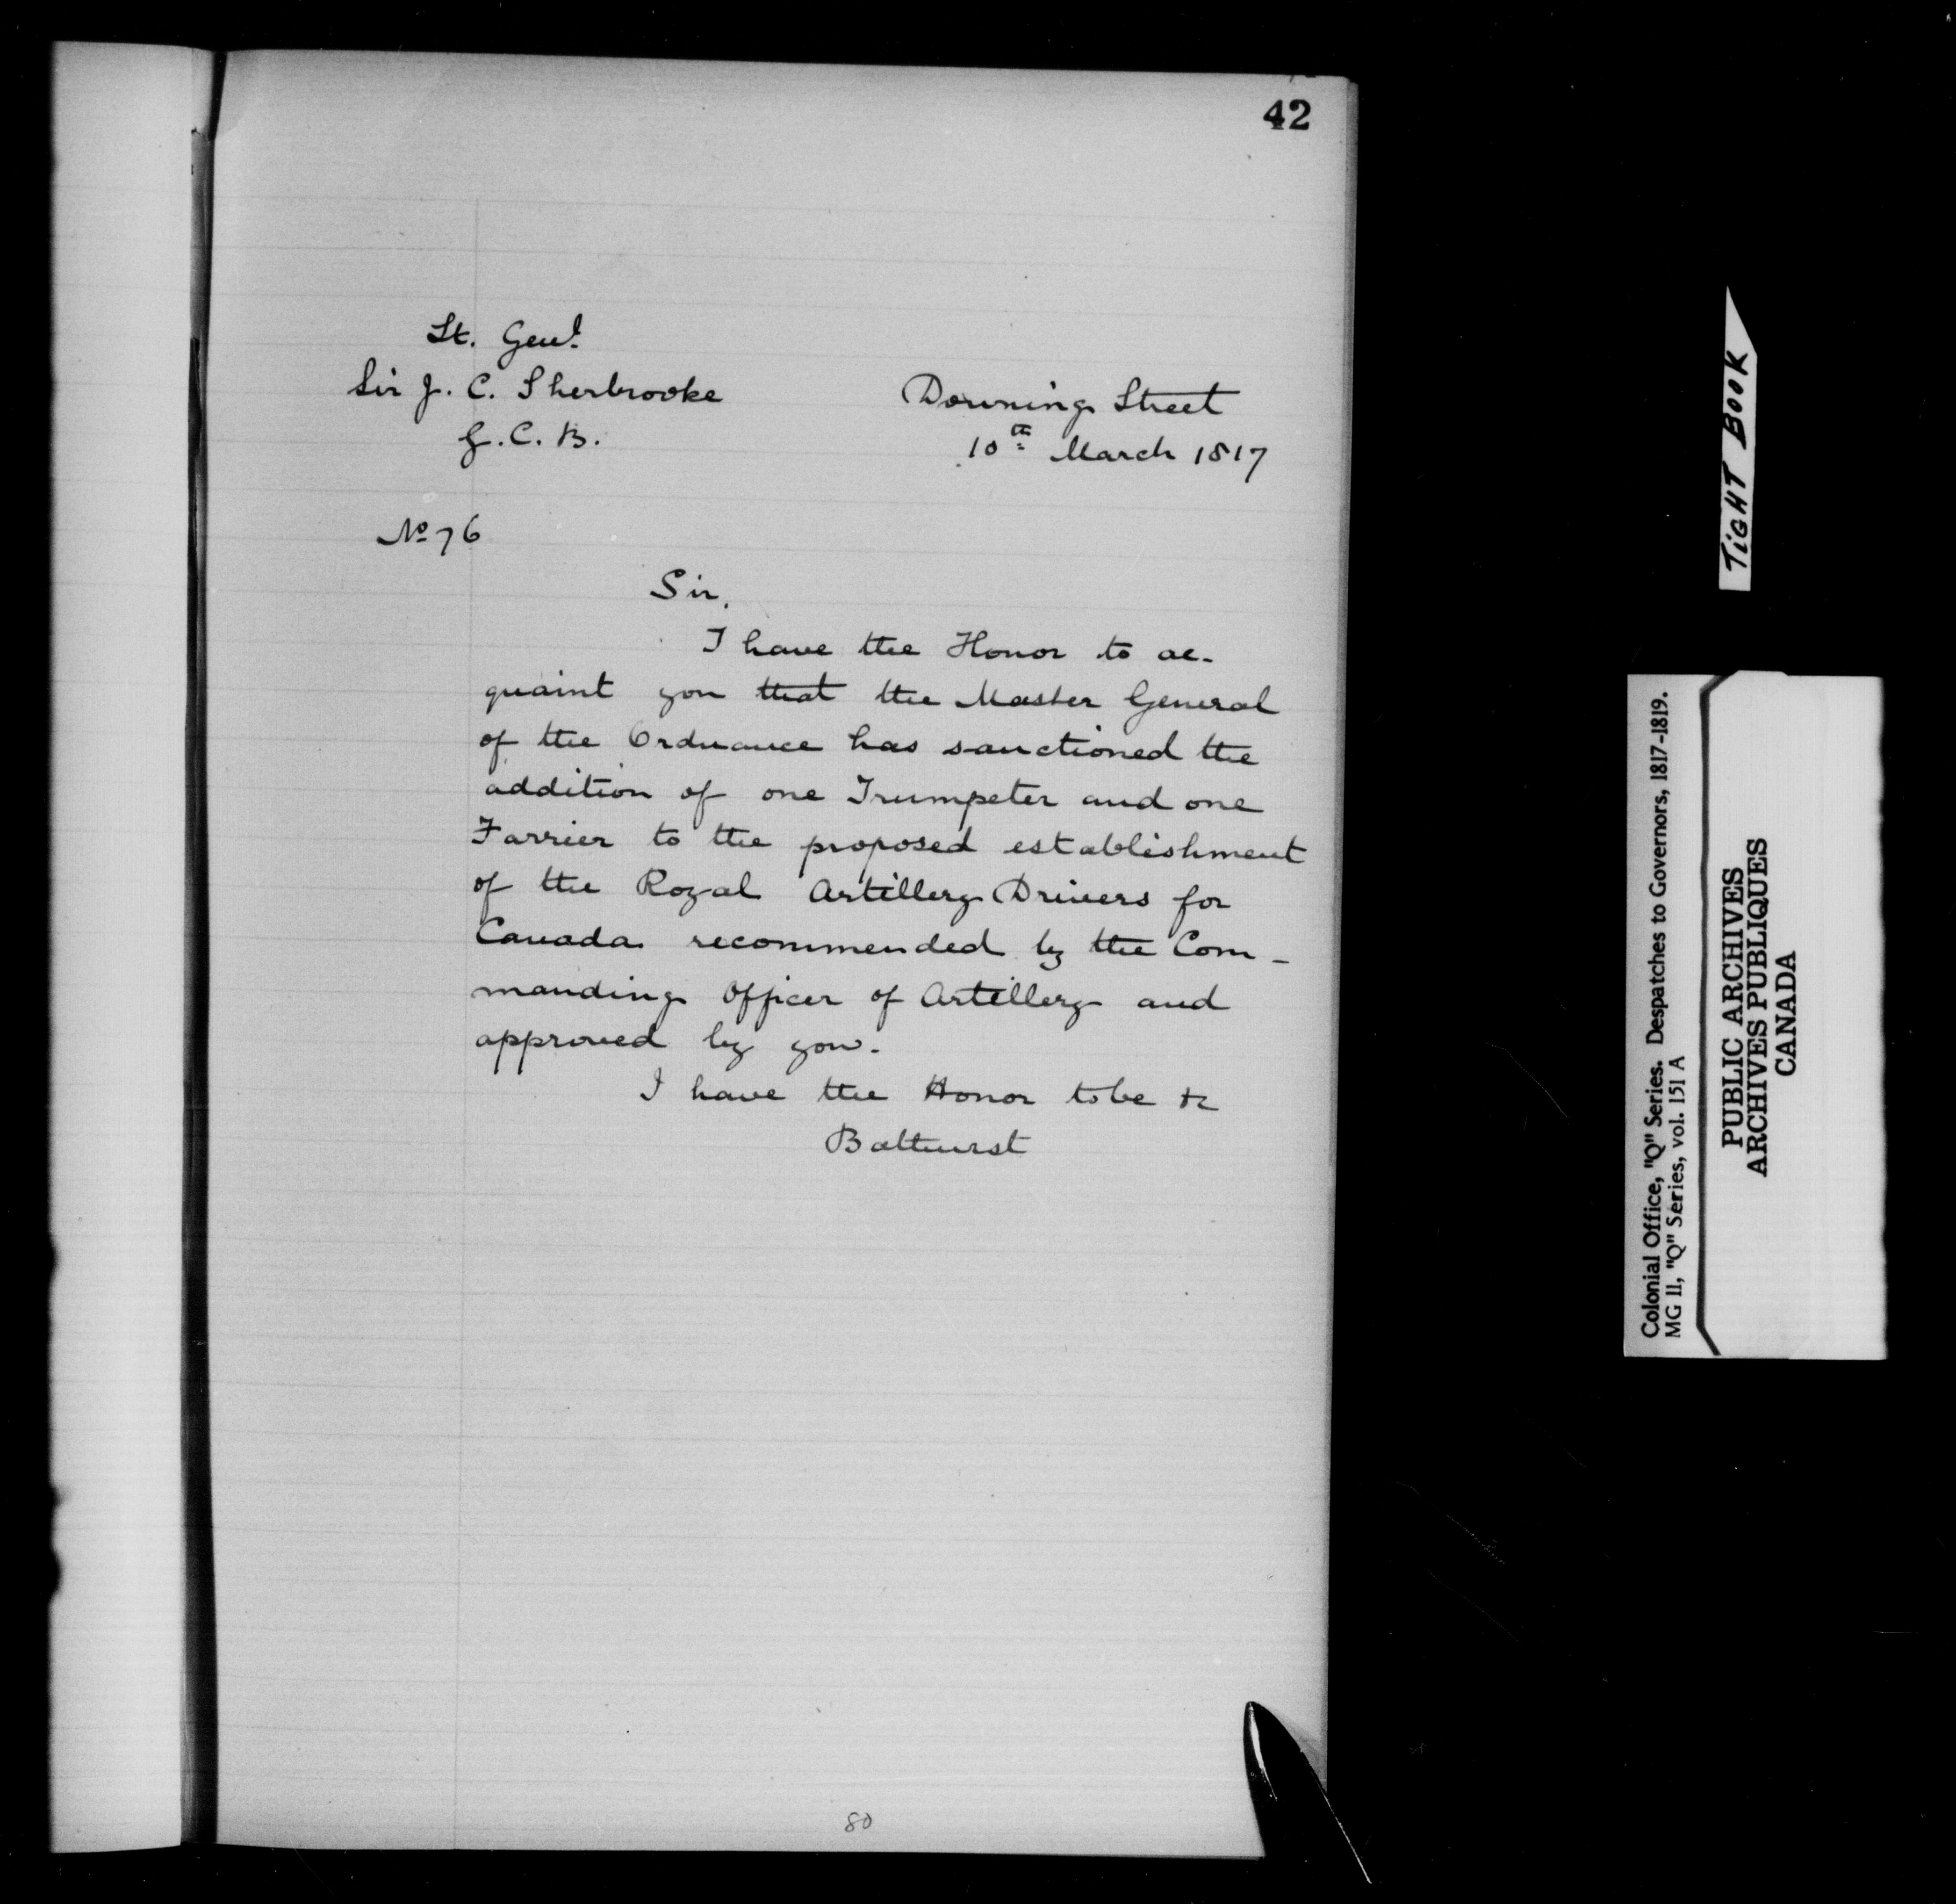 42
Lt. Genl.
Sir J. C. Sherbrooke
G. C. B.
Downing Street
10th March 1817
No 76
Sir,
I have the Honor to ac-
quaint you that the Master General
of the Ordnance has sanctioned the
addition of one Trumpeter and one
Farrier to the proposed establishment
of the Royal Artillery Drivers for
Canada recommended by the Com-
manding Officer of Artillery and
approved by you.
I have the Honor to be &c
Bathurst
80
TIGHT BOOK
Colonial Office, "Q" Series. Despatches to Governors, 1817-1819.
MG 11, "Q" Series, vol. 151 A
PUBLIC ARCHIVES
ARCHIVES PUBLIQUES
CANADA